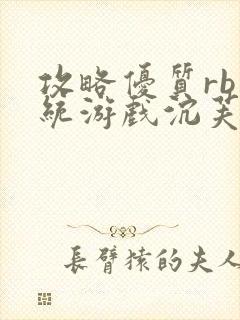 攻略優質rb
統游戲沉芙
長臂猿的夫人